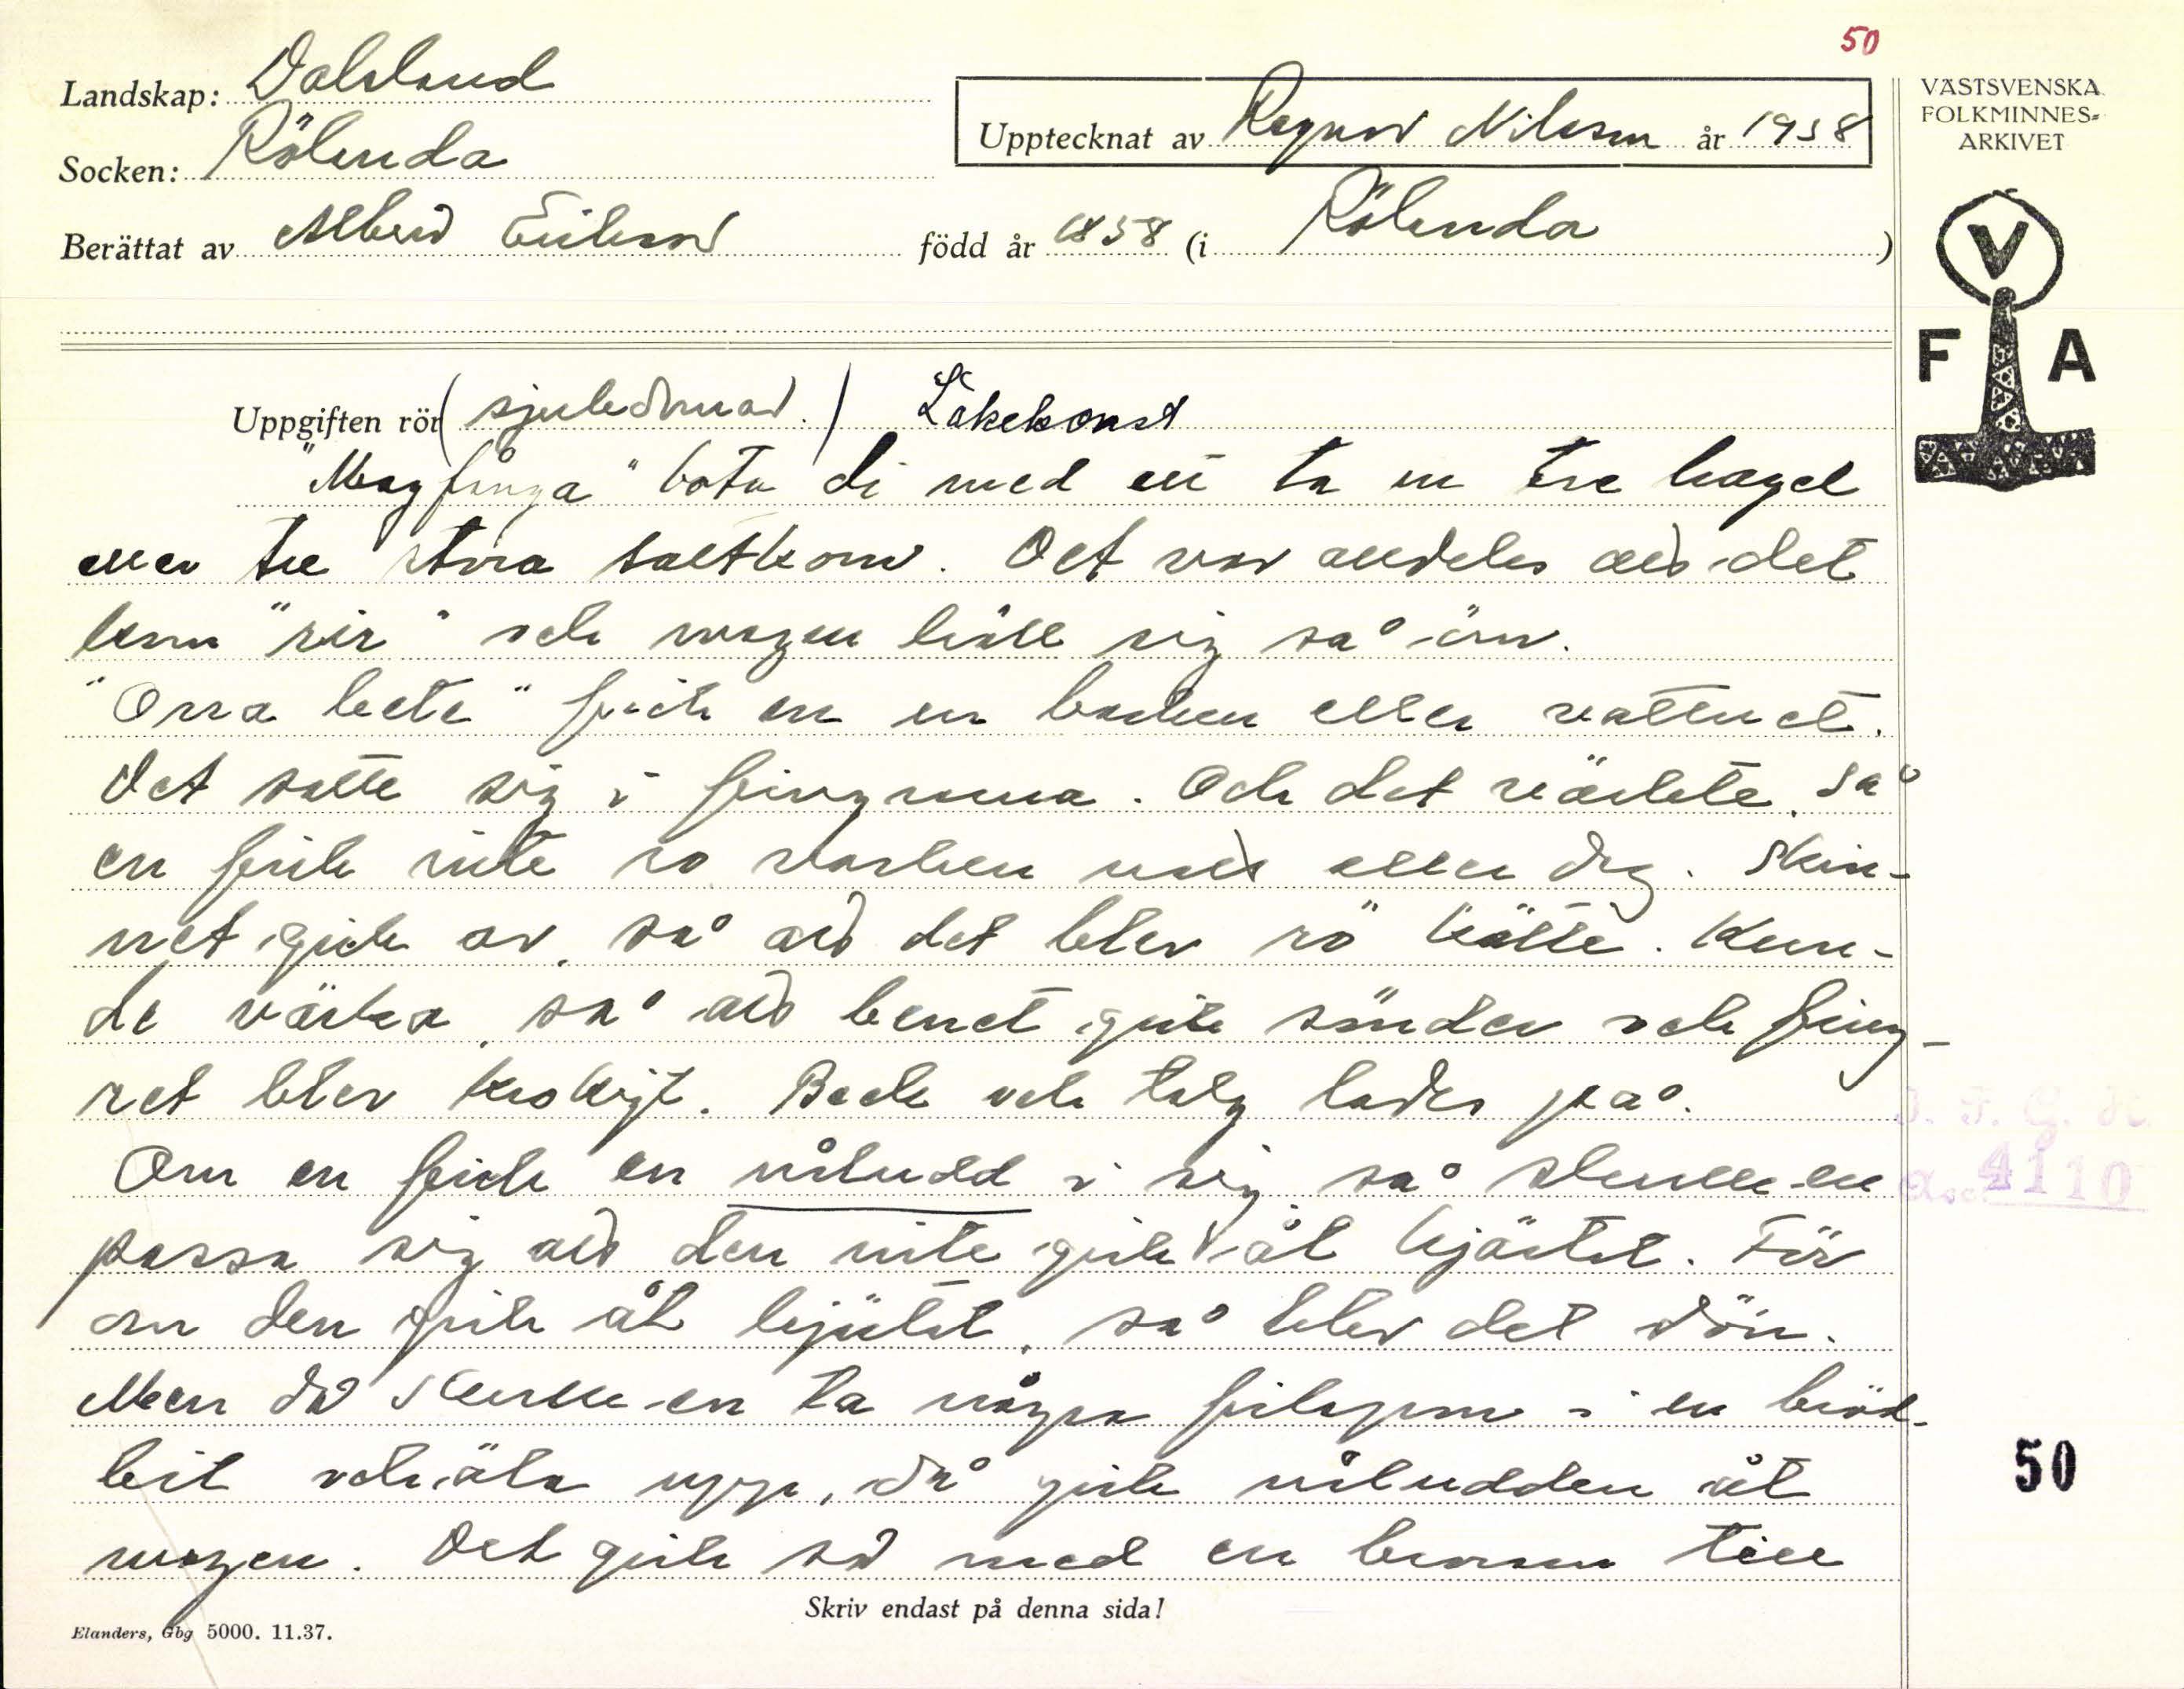 50
Landskap: Dalsland
Socken: Rölanda
Upptecknat av Ragnar Nilsson år 1938
Berättat av Albert Eriksson född år 1858 (i Rölanda)
VÄSTSVENSKA
FOLKMINNES=
ARKIVET
V
F A
Uppgiften rör (sjukdomar.) Läkekonst
"Magfånga" bota di med att ta in tre hagel
eller tre stora saltkorn. Det var alldeles att det
kom "rir" och magen höll sig så än.
"Onna bete" fick en en backen eller vattnet.
Det satte sig i fingrarna. Och det värkte, så
en fick inte ro varken natt eller dag. Skin-
net gick av, så att det blev rö kötte. Kun-
de värka, så att benet gick sönder och fing-
ret blev krokigt. Beck och talg lades på.
Om en fick en nåludd i sig, så skulle en
passa sig att den inte gick åt hjärtat. För
om den gick åt hjärtat, så blev det dön.
Men då skulle en ta några filspån i en bröd-
bit och äta upp, då gick nåludden åt
magen. Det gick så med en barn till
D. F. G. H.
Acc. 4110
50
Skriv endast på denna sida!
Elanders, Gbg 5000. 11.37.